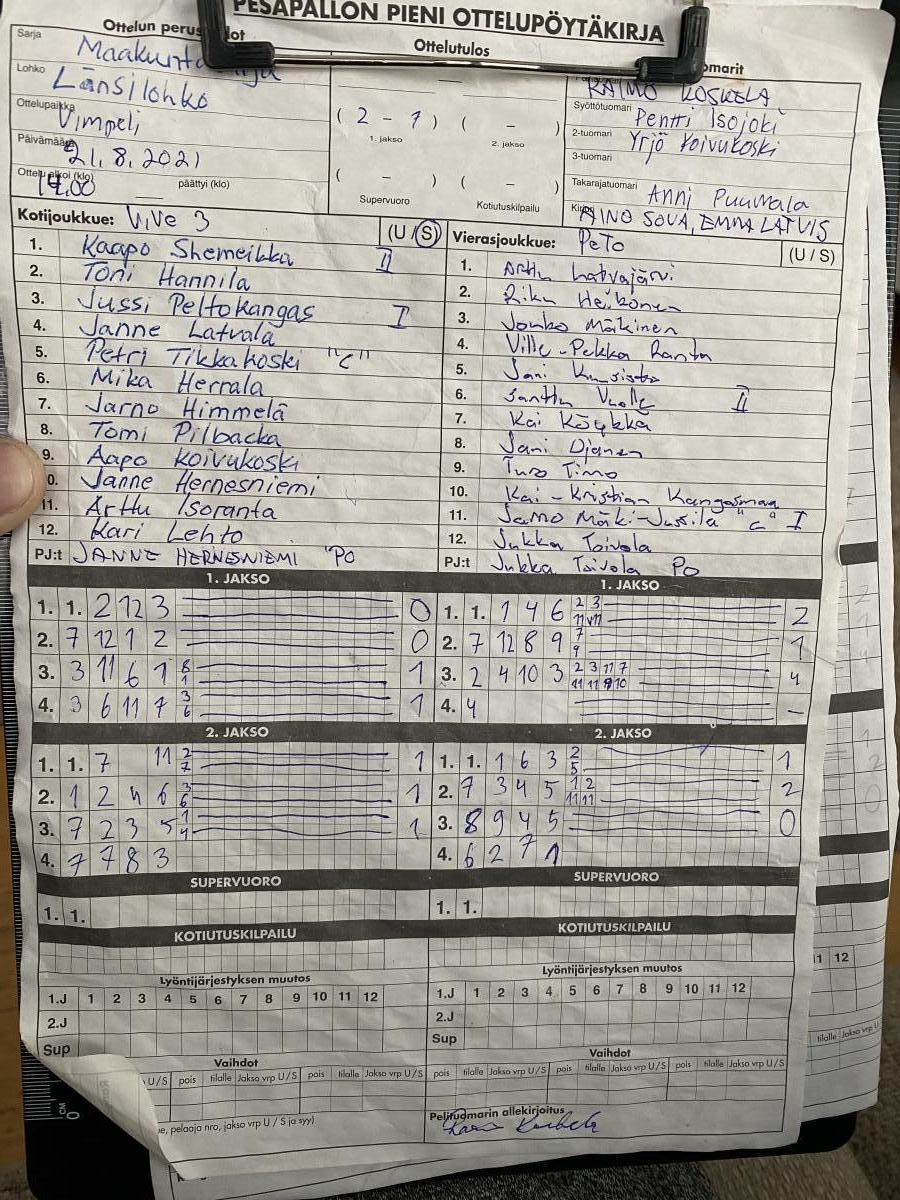 PESAPALLON PIENI OTTELUPÖYTÄKIRJA
Ottelun
Ottelutulos
Sarja
Lohko Länsilohko
Ottelupaikka Vimpeli
21.8.2021
päättyi (klo)
( 2 - 7 ) ( - )
1. jakso 2. jakso
( - ) ( - )
Supervuoro Kotiutuskilpailu
RAIMO KOSKELA
Syöttötuomari Pentti Isojoki
2-tuomari Yrjö Koivukoski
3-tuomari
Takarajatuomari Anni Puumala
AINO SOVA, EMMA LATVIS
Kotijoukkue: ViVe 3 (U / S)
1. Kaapo Shemeikka II
2. Toni Hannila
3. Jussi Peltokangas I
4. Janne Latvala
5. Petri Tikkakoski "C"
6. Mika Herrala
7. Jarno Himmelä
8. Tomi Pilbacka
9. Aapo Koivukoski
0. Janne Hernesniemi
11. Arttu Isoranta
12. Kari Lehto
PJ:t JANNE HERNESNIEMI "PO
Vierasjoukkue: PeTo (U / S)
1. Arttu Latvajärvi
2. Riku Heikonen
3. Mäkinen
4. Ville-Pekka Ranta
5. Jani
6. Santtu II
7. Kai Köykkä
8. Jani Ojanen
9. Turo Timo
10. Kai-Kristian Kangasmaa
11. Jarno Mäki-Jussila "C" I
12. Jukka Toivola
PJ:t Jukka Toivola PO
1. JAKSO
1. 1. 2 12 3 0
2. 7 12 1 2 0
3. 3 11 6 1 8 1 1
4. 3 6 11 7 3 6 1
1. JAKSO
1. 1. 1 4 6 2 3 11 11 2
2. 7 12 8 9 7 9 1
3. 2 4 10 3 2 3 11 7 11 11 9 10 4
4. 4 -
2. JAKSO
1. 1. 7 11 2 7 1
2. 1 2 4 6 3 6 1
3. 7 2 3 5 1 4 1
4. 7 7 8 3
2. JAKSO
1. 1. 1 6 3 2 5 1
2. 7 3 4 5 1 2 11 11 2
3. 8 9 4 5 0
4. 6 2 7 1
SUPERVUORO
1. 1.
SUPERVUORO
1. 1.
KOTIUTUSKILPAILU
KOTIUTUSKILPAILU
Lyöntijärjestyksen muutos
1.J 1 2 3 4 5 6 7 8 9 10 11 12
2.J
Sup
Lyöntijärjestyksen muutos
1.J 1 2 3 4 5 6 7 8 9 10 11 12
2.J
Sup
Vaihdot
U / S pois tilalle Jakso vrp U / S pois tilalle Jakso vrp U / S
Vaihdot
pois tilalle Jakso vrp U / S pois tilalle Jakso vrp U / S pois tilalle Jakso vrp U / S
e, pelaaja nro, jakso vrp U / S ja syy)
Pelituomarin allekirjoitus
11 12
tilalle Jakso vrp U
CM
0